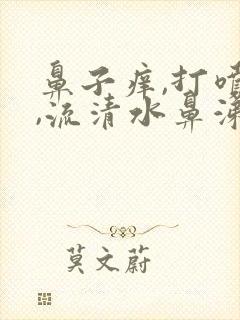 鼻子痒,打喷
,流清水鼻涕
莫文蔚